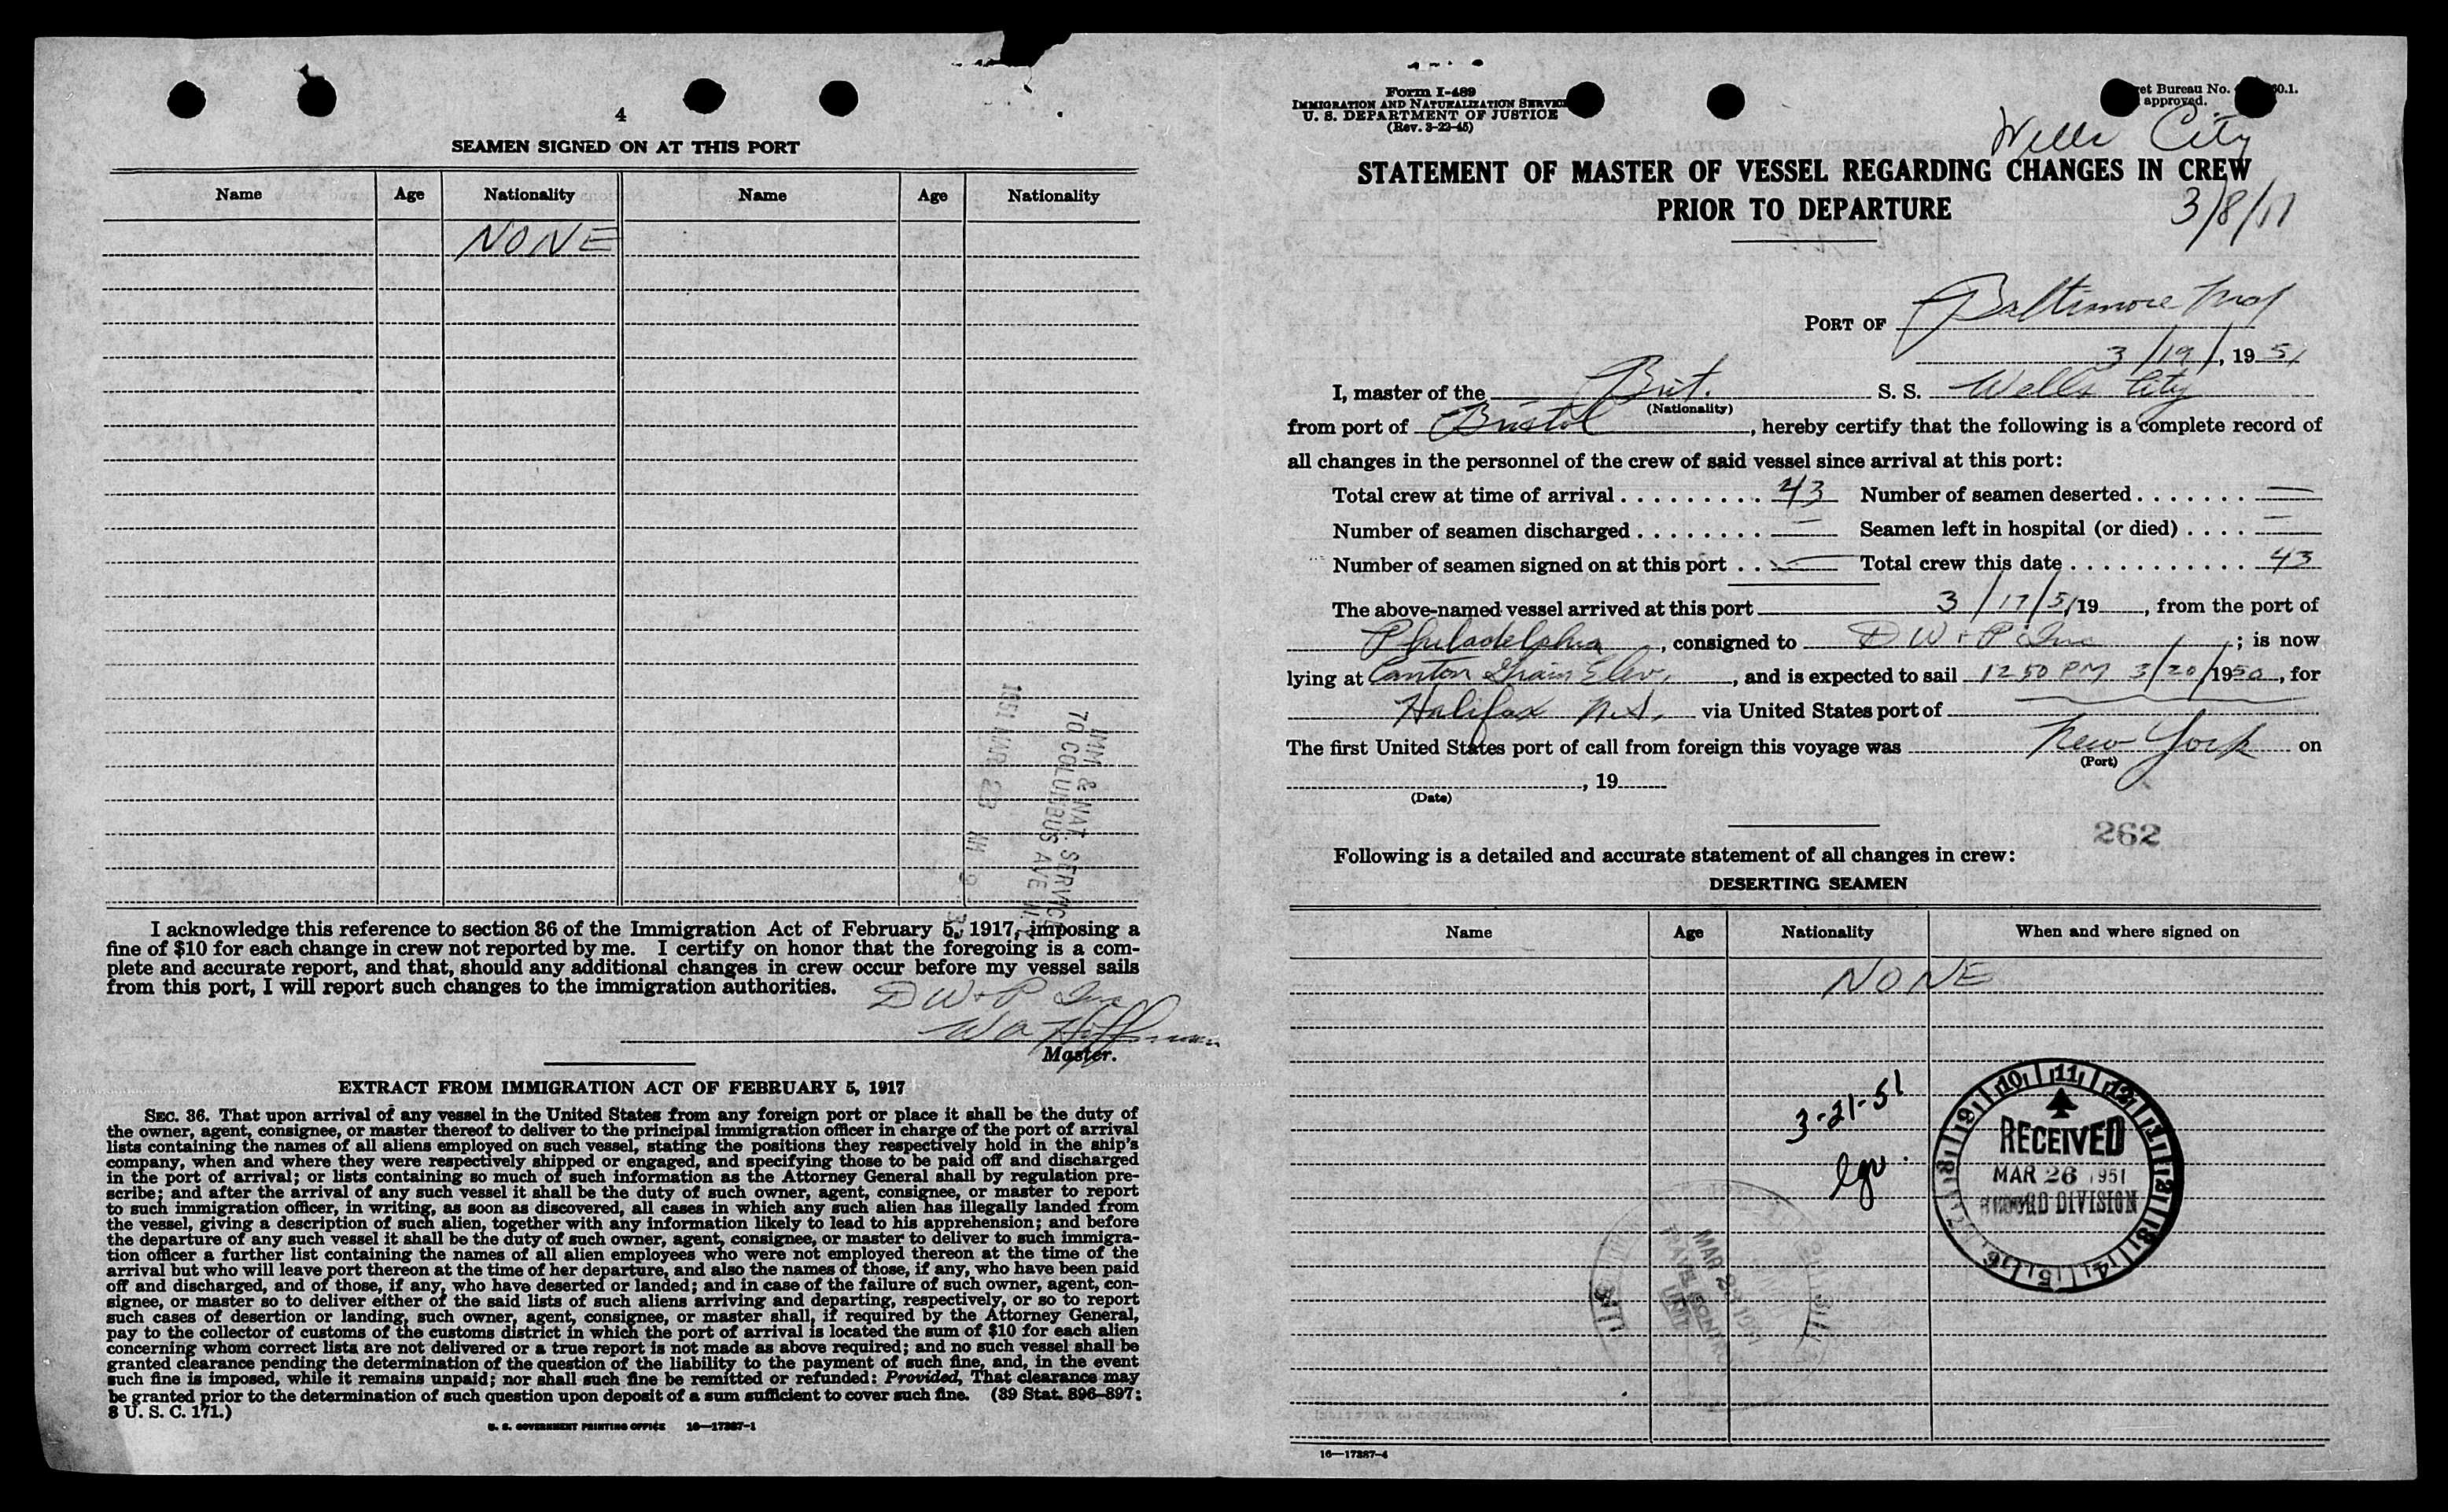 4
SEAMEN SIGNED ON AT THIS PORT
Name Age Nationality Name Age Nationality
NONE
I acknowledge this reference to section 36 of the Immigration Act of February 5, 1917, imposing a
fine of $10 for each change in crew not reported by me. I certify on honor that the foregoing is a com-
plete and accurate report, and that, should any additional changes in crew occur before my vessel sails
from this port, I will report such changes to the immigration authorities.
D W + P Inc
W A Hoffman
Master.
IMM & NAT. SERVICE
70 COLUMBUS AVE N.
1951 MAR 23 AM 9
EXTRACT FROM IMMIGRATION ACT OF FEBRUARY 5, 1917
SEC. 36. That upon arrival of any vessel in the United States from any foreign port or place it shall be the duty of
the owner, agent, consignee, or master thereof to deliver to the principal immigration officer in charge of the port of arrival
lists containing the names of all aliens employed on such vessel, stating the positions they respectively hold in the ship's
company, when and where they were respectively shipped or engaged, and specifying those to be paid off and discharged
in the port of arrival; or lists containing so much of such information as the Attorney General shall by regulation pre-
scribe; and after the arrival of any such vessel it shall be the duty of such owner, agent, consignee, or master to report
to such immigration officer, in writing, as soon as discovered, all cases in which any such alien has illegally landed from
the vessel, giving a description of such alien, together with any information likely to lead to his apprehension; and before
the departure of any such vessel it shall be the duty of such owner, agent, consignee, or master to deliver to such immigra-
tion officer a further list containing the names of all alien employees who were not employed thereon at the time of the
arrival but who will leave port thereon at the time of her departure, and also the names of those, if any, who have been paid
off and discharged, and of those, if any, who have deserted or landed; and in case of the failure of such owner, agent, con-
signee, or master so to deliver either of the said lists of such aliens arriving and departing, respectively, or so to report
such cases of desertion or landing, such owner, agent, consignee, or master shall, if required by the Attorney General,
pay to the collector of customs of the customs district in which the port of arrival is located the sum of $10 for each alien
concerning whom correct lists are not delivered or a true report is not made as above required; and no such vessel shall be
granted clearance pending the determination of the question of the liability to the payment of such fine, and, in the event
such fine is imposed, while it remains unpaid; nor shall such fine be remitted or refunded: Provided, That clearance may
be granted prior to the determination of such question upon deposit of a sum sufficient to cover such fine. (39 Stat. 896–897;
8 U. S. C. 171.)
U. S. GOVERNMENT PRINTING OFFICE 16—17387-1
Form I-489
IMMIGRATION AND NATURALIZATION SERVICE
U. S. DEPARTMENT OF JUSTICE
(Rev. 3-22-45)
Bureau No.
approved.
Wells City
STATEMENT OF MASTER OF VESSEL REGARDING CHANGES IN CREW
PRIOR TO DEPARTURE
3/8/51
PORT OF Baltimore Md
3/19/, 19 51
I, master of the Brit. S. S. Wells City
(Nationality)
from port of Bristol, hereby certify that the following is a complete record of
all changes in the personnel of the crew of said vessel since arrival at this port:
Total crew at time of arrival . . . . . . . . . 43 Number of seamen deserted . . . . . . . —
Number of seamen discharged . . . . . . . . — Seamen left in hospital (or died) . . . . —
Number of seamen signed on at this port . . — Total crew this date . . . . . . . . . . . 43
The above-named vessel arrived at this port 3/17/51 19, from the port of
Philadelphia, consigned to D W + P Inc; is now
lying at Canton Grain Elev., and is expected to sail 12 50 PM 3/20/1950, for
Halifax N.S. via United States port of —
The first United States port of call from foreign this voyage was New York on
(Port)
, 19
(Date)
262
Following is a detailed and accurate statement of all changes in crew:
DESERTING SEAMEN
Name Age Nationality When and where signed on
NONE
3-21-51
10 11 12 1 2 3 4 5 6 7 8 9
RECEIVED
MAR 26 1951
RECORD DIVISION
MAR
16—17387-4